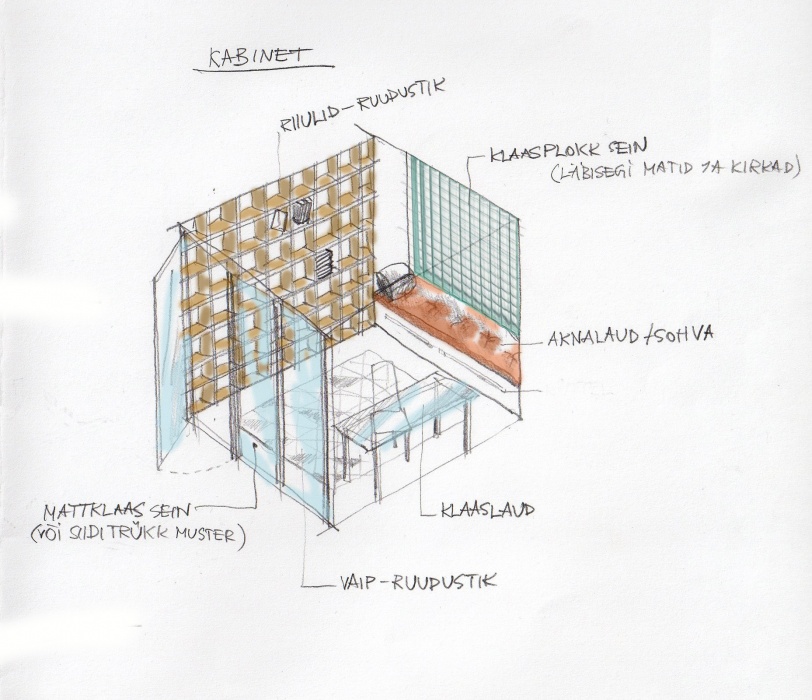 KABINET
RIIULID-RUUDUSTIK
KLAASPLOKK SEIN
(LÄBISEGI MATID JA KIRKAD)
AKNALAUD/SOHVA
MATTKLAAS SEIN
(VÕI SIIDITRÜKK MUSTER)
KLAASLAUD
VAIP-RUUDUSTIK